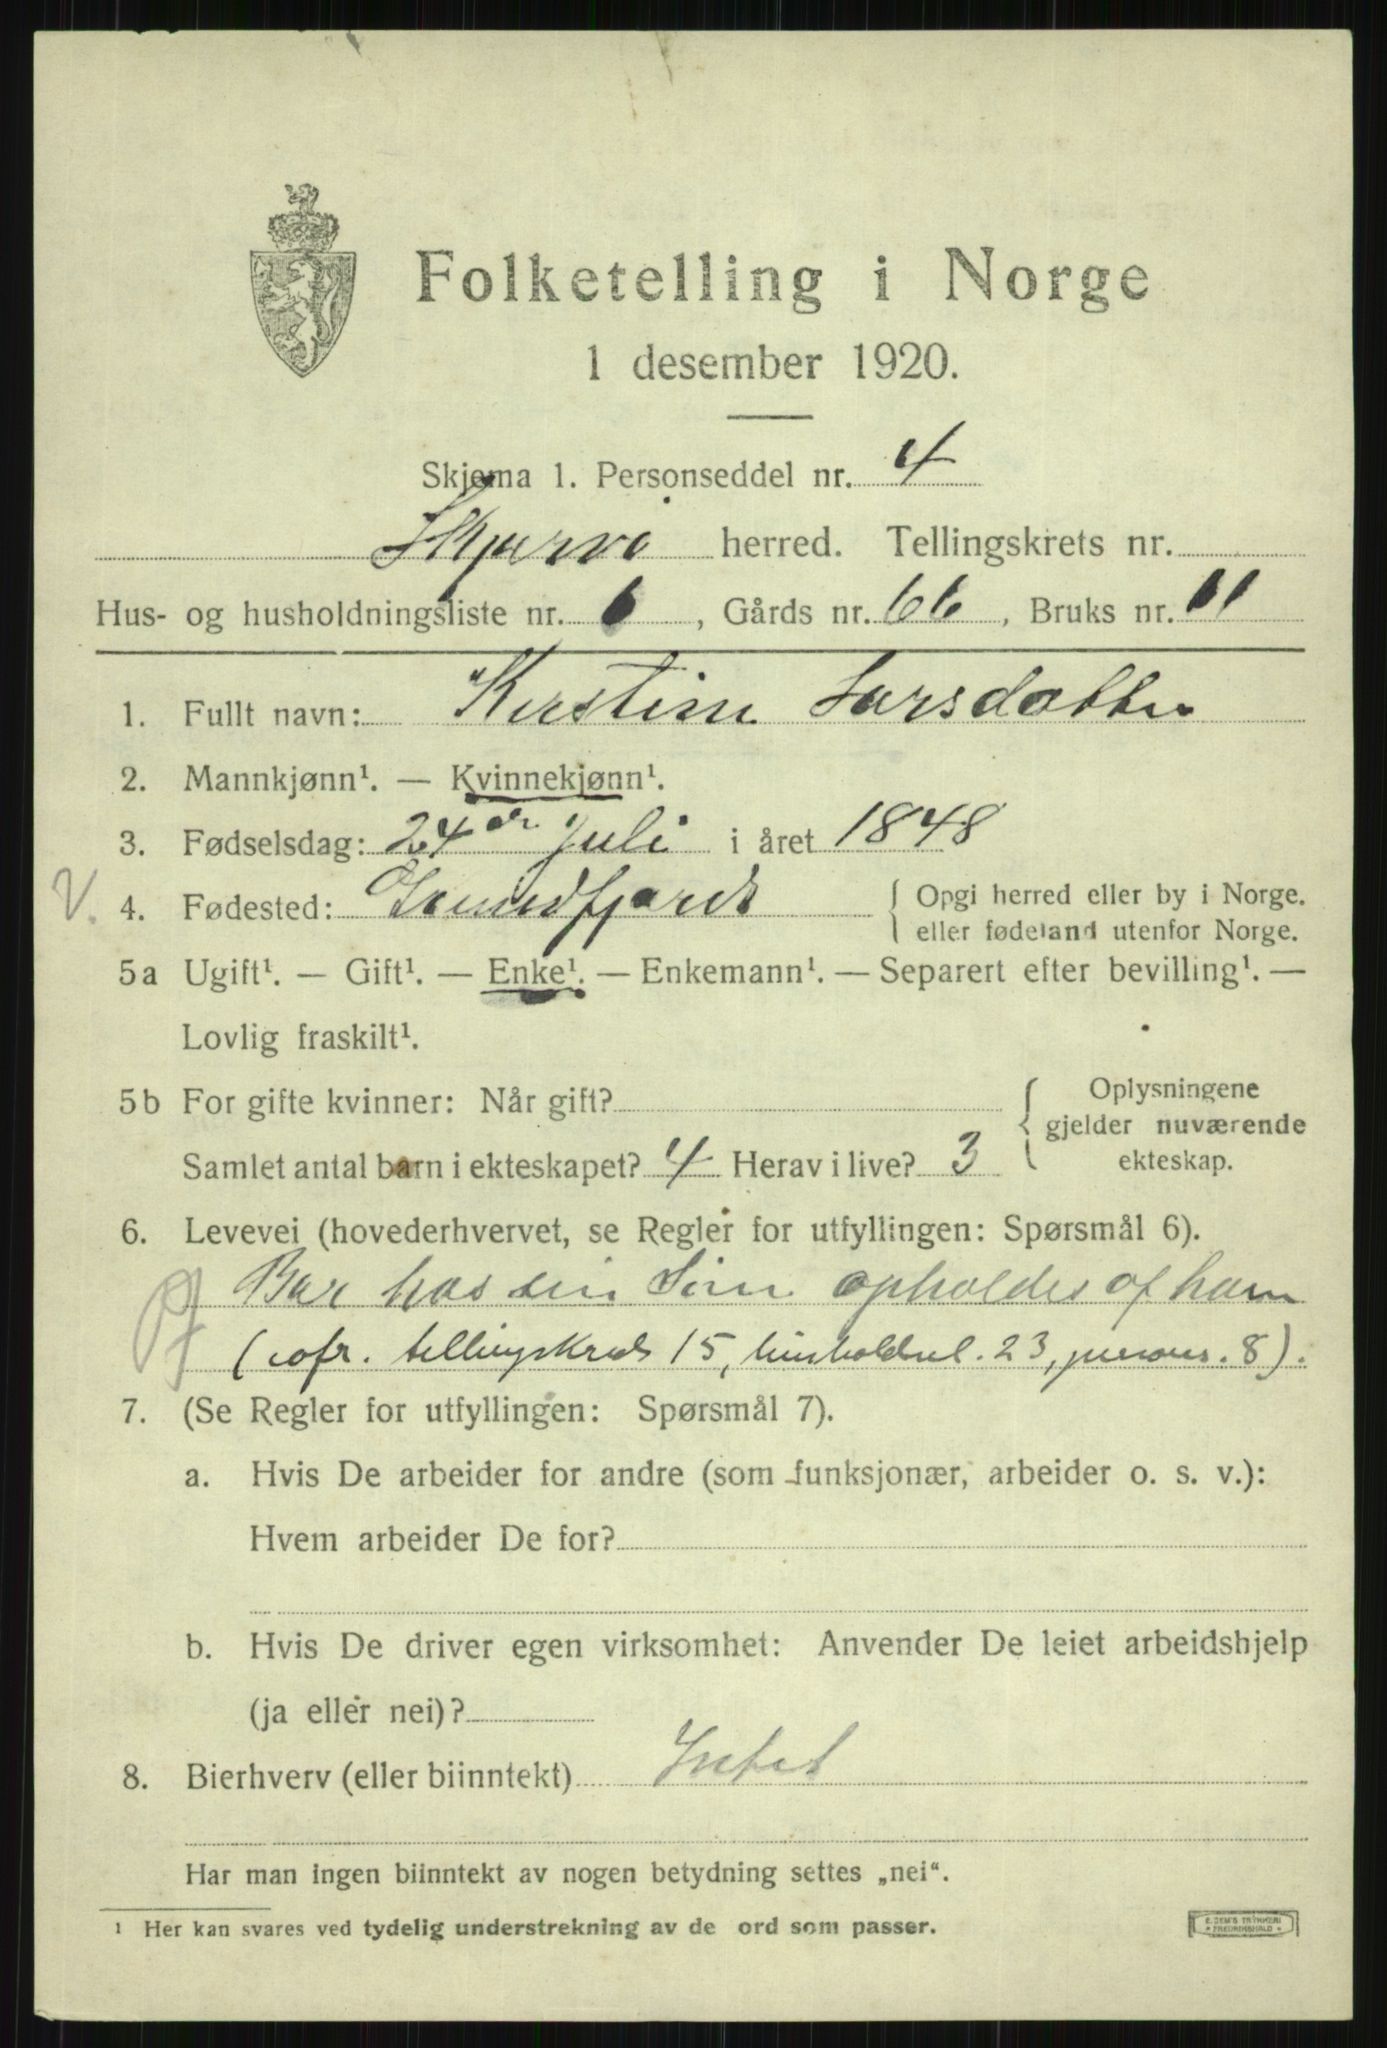 Folketelling i Norge
1 desember 1920.
Skjema 1. Personseddel nr. 4
Skjærvø herred. Tellingskrets nr.
Hus- og husholdningsliste nr. 6, Gårds nr. 66, Bruks nr. 11
1. Fullt navn: Kirstine Larsdatter
2. Mannkjønn¹. — Kvinnekjønn¹.
3. Fødselsdag: 24de Juli i året 1848
V. 4. Fødested: { Opgi herred eller by i Norge.
eller fødeland utenfor Norge.
5a Ugift¹. — Gift¹. — Enke¹. — Enkemann¹. — Separert efter bevilling¹. —
Lovlig fraskilt¹.
5b For gifte kvinner: Når gift? { Oplysningene
gjelder nuværende
Samlet antal barn i ekteskapet? 4 Herav i live? 3 ekteskap.
6. Levevei (hovederhvervet, se Regler for utfyllingen: Spørsmål 6).
Bor hos sin Sønn opholdes af ham
(cofr. tellingskreds 15, husholdn.l. 23, persons. 8).
7. (Se Regler for utfyllingen: Spørsmål 7).
a. Hvis De arbeider for andre (som funksjonær, arbeider o. s. v.):
Hvem arbeider De for?
b. Hvis De driver egen virksomhet: Anvender De leiet arbeidshjelp
(ja eller nei)?
8. Bierhverv (eller biinntekt) Intet
Har man ingen biinntekt av nogen betydning settes „nei“.
¹ Her kan svares ved tydelig understrekning av de ord som passer.
E. SEM'S TRYKKERI
FREDRIKSHALD